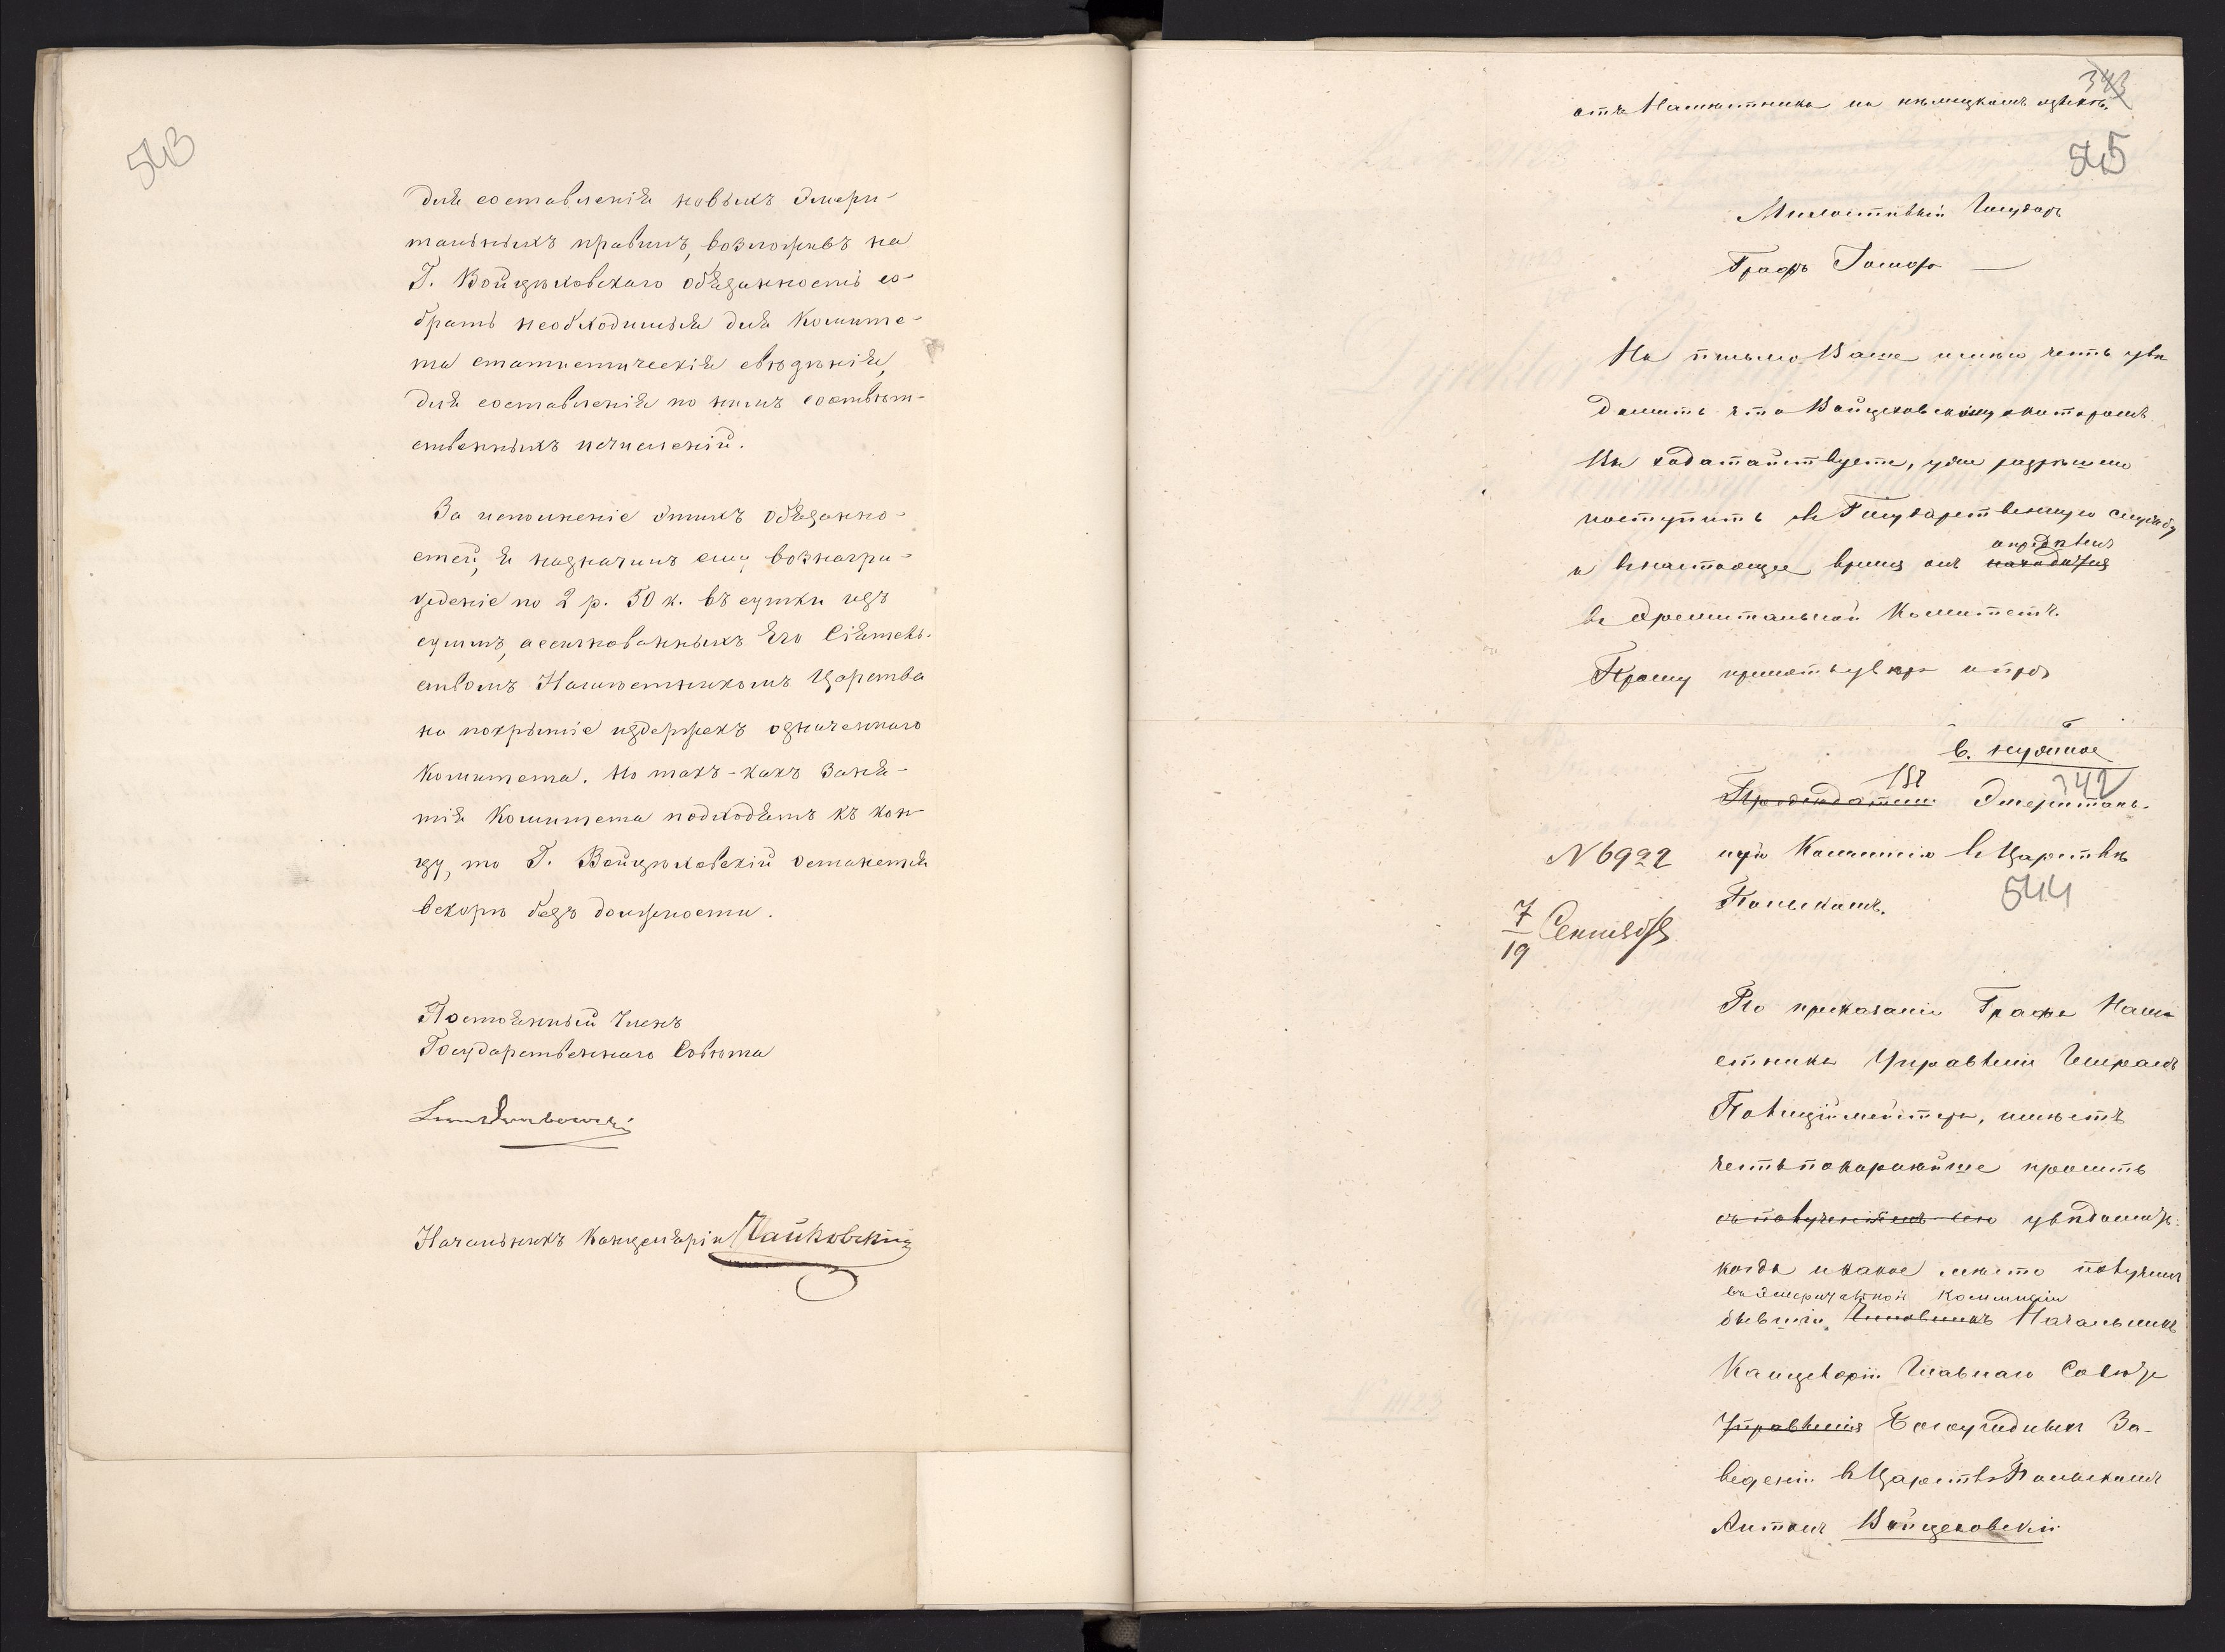 543
для составленія новыхъ Эмери-
тальныхъ правилъ, возложивъ на
Г. Войцѣховскаго обязанность со-
брать необходимыя для Комите-
та статистическія свѣдѣнія,
для составленія по нимъ соотвѣт-
ственныхъ исчисленій.
За исполненіе этихъ обязанно-
стей, я назначилъ ему вознагра-
жденіе по 2 р. 50 к. въ сутки изъ
суммъ, ассигнованныхъ Его Сіятель-
ствомъ Намѣстникомъ Царства
на покрытіе издержекъ означеннаго
Комитета. Но такъ-какъ заня-
тія Комитета подходятъ къ кон-
цу, то Г. Войцѣховскій останется
вскорѣ безъ должности.
Постоянный Членъ
Государственнаго Совѣта
Начальникъ Канцеляріи Чайковскій
343
отъ Намѣстника на нѣмецкомъ языкѣ.
545
Милостивый Государь
Графъ
На письмо Ваше имѣю честь увѣ
домить что Войцеховскому, о которомъ
Вы ходатайствуете, уже разрѣшено
поступить въ Государственную службу
опредѣленъ
и въ настоящее время онъ находится
въ Комитетъ.
Прошу принять увѣр
в. нужное
342
Эмериталь-
№ 6922 ную Коммисію въ Царствѣ
Польскомъ.
544
7/19 Сентября
По приказанію Графа Намѣ
стника Управленіе Генералъ
Полиціймейстера, имѣетъ
честь покорнѣйше просить
увѣдомить
когда и какое мѣсто получилъ
въ Эмеритальной Коммисіи
бывшій Чиновникъ Начальникъ
Канцеляріи Главнаго Совѣта
Управленія Богоугодныхъ За-
веденій въ Царствѣ Польскомъ
Антонъ Войцеховскій